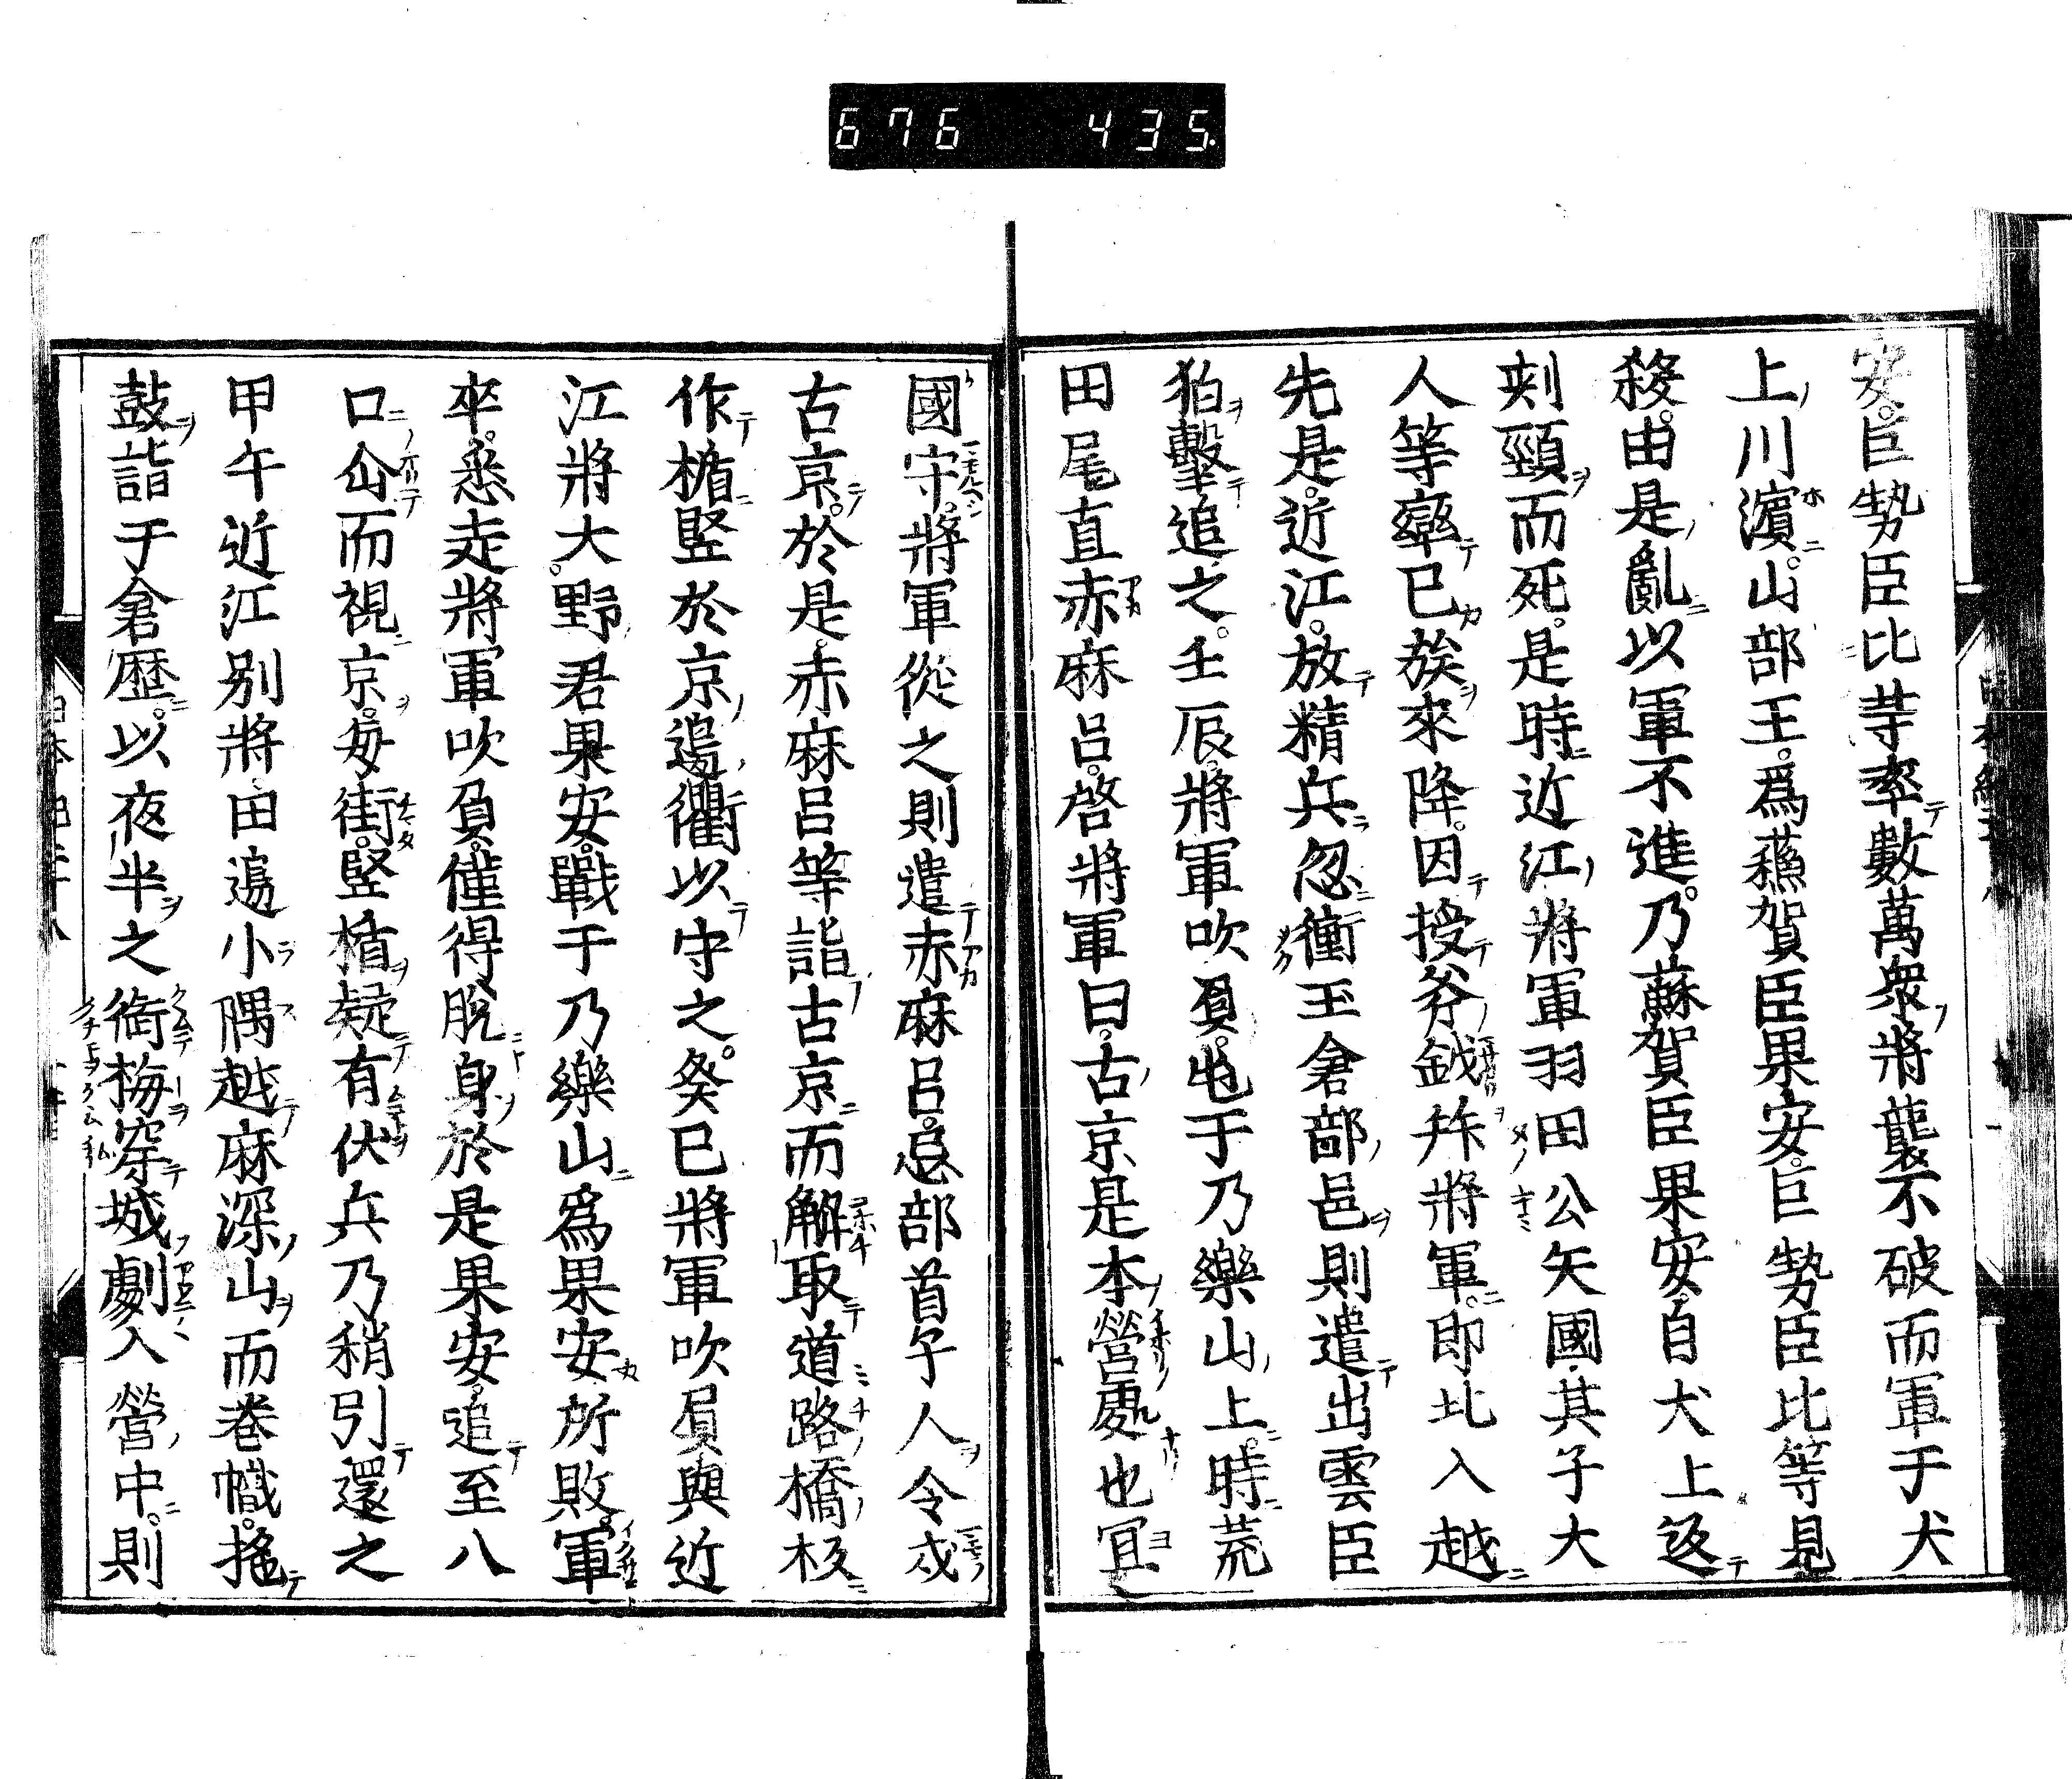 676 435
安巨勢臣比等率數萬衆將襲不破而軍于犬
上川濵山部王爲蘓賀臣果安巨勢臣比等見
殺由是亂以軍不進乃蘇賀臣果安自犬上返
刾頸而死是時近江將軍羽田公矢國其子大
人等率已族來降因授斧鉞拜將軍即北入越
先是近江放精兵忽衝玉倉部邑則遣出雲臣
狛擊追之壬辰將軍吹負屯于乃樂山上時荒
田尾直赤麻呂啓將軍曰古京是本營處也冝
國守將軍從之則遣赤麻呂忌部首子人令戍
古京於是赤麻呂等詣古京而解取道路橋板
作楯竪於京邊衢以守之癸巳將軍吹負與近
江將大野君果安戰于乃樂山爲果安所敗軍
卒悉走將軍吹負僅得脫身於是果安追至八
口仚而視京毎街竪楯疑有伏兵乃稍引還之
甲午近江別將田邊小隅越麻深山而巻幟搖
鼓詣于倉歷以夜半之衘梅穿城劇入營中則